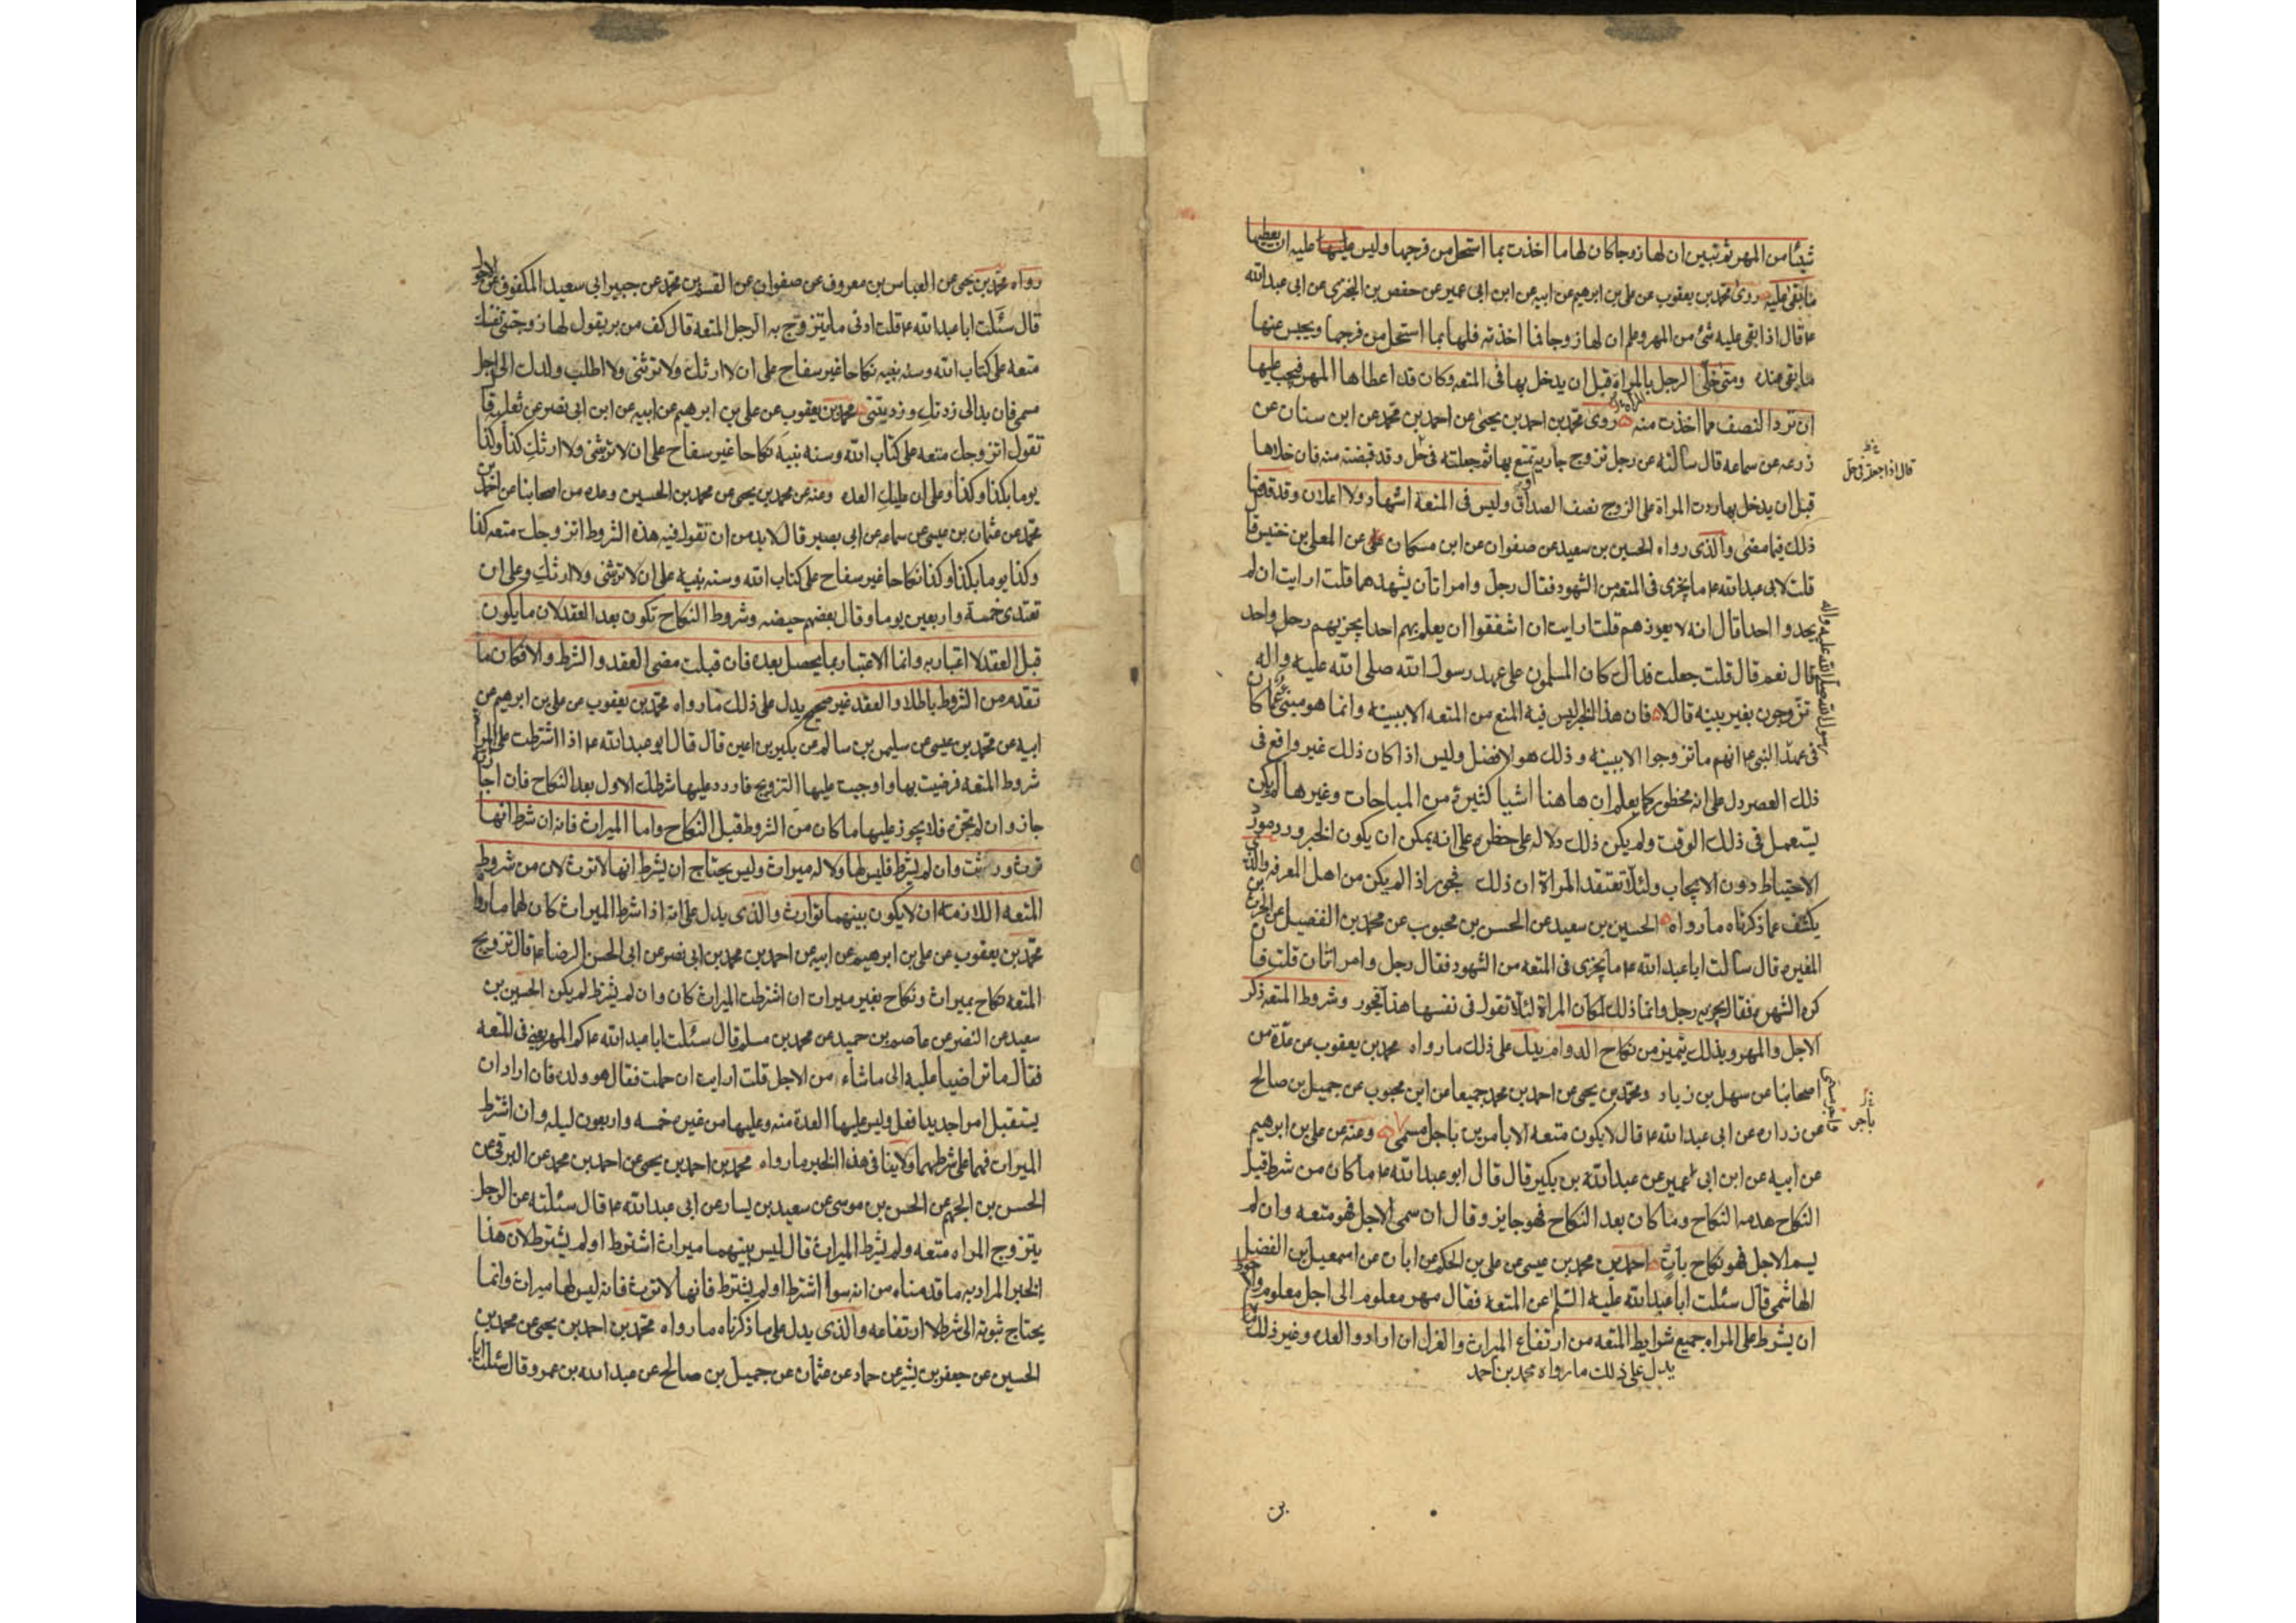 شيئا من المهر ثم تبين ان لها زوجا كان لها ما اخذت بما استحل من فرجها وليس عليه ان يعطيها
ما بقى عليه روى محمد بن يعقوب عن علي بن ابرهيم عن ابيه عن ابن ابى عمير عن حفص بن البخترى عن ابى عبد الله
ع قال اذا بقى عليه شئ من المهر وعلم ان لها زوجا فما اخذته فلها بما استحل من فرجها ويحبس عنها
ما بقى عنده ومتى خلى الرجل بالمراة قبل ان يدخل بها فى المتعه وكان قد اعطاها المهر فيجب عليها
ان ترد النصف مما اخذت منه روى محمد بن احمد بن يحيى عن احمد بن محمد عن ابن سنان عن
زرعه عن سماعه قال سالته عن رجل تزوج جارية تمتع بها ثم جعلته فى حل وقد قبضته منه فان خلاها
قال اذا جعلته فى حل
قبل ان يدخل بها ردت المراة على الزوج نصف الصداق وليس فى المتعة اشهاد ولا اعلان وقد قدمنا
ذلك فيما مضى والذى رواه الحسين بن سعيد عن صفوان عن ابن مسكان عن المعلى بن خنيس قا
قلت لابى عبد الله ع ما يجزى فى المتعه من الشهود فقال رجل وامراتان يشهدهما قلت ارايت ان لم
يجدوا احدا قال انه لا يعوزهم قلت ارايت ان اشفقوا ان يعلم بهم احد ايجزيهم رجل واحد
قال نعم قال قلت جعلت فداك كان المسلمون على عهد رسول الله صلى الله عليه واله
تزوجون بغير بينه قال لا فان هذا الخبر ليس فيه المنع من المتعه الا ببينه وانما هو مبنى عما كا
فى عهد النبى ع انهم ما تزوجوا الا ببينه وذلك هو الافضل وليس اذا كان ذلك غير واقع فى
ذلك العصر دل على انه محظور كما يعلم ان هاهنا اشيا كثيرة من المباحات وغيرها لم يكن
يستعمل فى ذلك الوقت ولم يكن ذلك دلاله على حظره على انه يمكن ان يكون الخبر ورد مورد
الاحتياط دون الايجاب ولئلا تعتقد المراة ان ذلك فجور اذا لم يكن من اهل المعرفه والذى
يكشف عما ذكرناه ما رواه الحسين بن سعيد عن الحسن بن محبوب عن محمد بن الفضيل عن الحرث بن
المغيره قال سالت ابا عبد الله ع ما يجزى فى المتعه من الشهود فقال رجل وامراتان قلت فان
كره الشهره فقال يجزيه رجل وانما ذلك لمكان المراة لئلا تقول فى نفسها هذا فجور وشروط المتعه ذكر
الاجل والمهر وبذلك يتميز من نكاح الدوام يدل على ذلك ما رواه محمد بن يعقوب عن عدة من
اصحابنا عن سهل بن زياد ومحمد بن يحيى عن احمد بن محمد جميعا عن ابن محبوب عن جميل بن صالح
عن زراره عن ابى عبد الله ع قال لا يكون متعه الا بامرين باجل مسمى وعنه عن على بن ابرهيم
عن ابيه عن ابن ابى عمير عن عبد الله بن بكير قال قال ابو عبد الله ع ما كان من شرط قبل
النكاح هدمه النكاح وما كان بعد النكاح فهو جايز وقال ان سمى الاجل فهو متعه وان لم
يسم الاجل فهو نكاح بات احمد بن محمد بن عيسى عن على بن الحكم عن ابان عن اسمعيل بن الفضيل
الهاشمى قال سئلت ابا عبد الله عليه السلم عن المتعه فقال مهر معلوم الى اجل معلوم
ان يشرط على المراه جميع شرايط المتعه من ارتفاع الميراث والعزل ان اراد والعده وغير ذلك
يدل على ذلك ما رواه محمد بن احمد
رواه محمد بن يحيى عن العباس بن معروف عن صفوان عن القسم بن محمد عن جبير ابى سعيد المكفوف عن الاحول
قال سئلت ابا عبد الله ع قلت ادنى ما يتزوج به الرجل المتعه قال كف من بر يقول لها زوجينى نفسك
متعه على كتاب الله وسنه نبيه نكاحا غير سفاح على ان لا ارثك ولا ترثنى ولا اطلب ولدك الى اجل
مسمى فان بدالى زدتك وزديتنى محمد بن يعقوب عن على بن ابرهيم عن ابيه عن ابن ابى نصر عن ثعلبه قا
تقول اتزوجك متعه على كتاب الله وسنه نبيه نكاحا غير سفاح على ان لا ترثنى ولا ارثك كذا وكذا
يوما بكذا وكذا وعلى ان عليك العده وعنه عن محمد بن يحيى عن محمد بن الحسين وعده من اصحابنا عن احمد بن
محمد عن عثمان بن عيسى عن سماعه عن ابى بصير قال لا بد من ان تقول فيه هذه الشروط اتزوجك متعه كذا
وكذا يوما بكذا وكذا نكاحا غير سفاح على كتاب الله وسنه نبيه على ان لا ترثنى ولا ارثك وعلى ان
تعتدى خمسة واربعين يوما وقال بعضهم حيضه وشروط النكاح تكون بعد العقد لان ما يكون
قبل العقد لا اعتبار به وانما الاعتبار بما يحصل بعده فان قبلت مضى العقد والشرط والا فكان ما
تقدم من الشروط باطلا والعقد غير صحيح يدل على ذلك ما رواه محمد بن يعقوب عن على بن ابرهيم عن
ابيه عن محمد بن عيسى عن سليمن بن سالم عن بكير بن اعين قال قال ابو عبد الله ع اذا اشترطت على المراة
شروط المتعه فرضيت بها واوجبت عليها التزويج فاردد عليها شرطك الاول بعد النكاح فان اجازته
جاز وان لم تجزه فلا يجوز عليها ما كان من الشروط قبل النكاح واما الميراث فانه ان شرط انها
ترث ورثت وان لم يشرط فليس لها ولا له ميراث وليس يحتاج ان يشرط انها لا ترث لان من شروط
المتعه اللازمه ان لا يكون بينهما توارث والذى يدل على انه اذا شرط الميراث كان لهما ما رواه
محمد بن يعقوب عن على بن ابرهيم عن ابيه عن احمد بن محمد بن ابى نصر عن ابى الحسن الرضا ع قال تزويج
المتعه نكاح بميراث ونكاح بغير ميراث ان اشترطت الميراث كان وان لم يشترط لم يكن الحسين بن
سعيد عن النضر عن عاصم بن حميد عن محمد بن مسلم قال سئلت ابا عبد الله ع كم المهر يعنى فى المتعه
فقال ما تراضيا عليه الى ما شاء من الاجل قلت ارايت ان حملت فقال هو ولده فان اراد ان
يستقبل امرا جديدا فعل وليس عليها العدة منه وعليها من غيره خمسه واربعون ليله وان اشترط
الميراث فهما على شرطهما ولا ينافى هذا الخبر ما رواه محمد بن احمد بن يحيى عن احمد بن محمد عن البرقى عن
الحسن بن الجهم عن الحسن بن موسى عن سعيد بن يسار عن ابى عبد الله ع قال سئلته عن الرجل
يتزوج المراه متعه ولم يشرط الميراث قال ليس بينهما ميراث اشترط او لم يشترط لان هذا
الخبر المراد به ما قدمناه من انه سوا اشترط او لم يشترط فانها لا ترث فانه ليس لها ميراث وانما
يحتاج ثبوته الى شرط لا ارتفاعه والذى يدل على ما ذكرناه ما رواه محمد بن احمد بن يحيى عن محمد بن
الحسين عن جعفر بن بشير عن حماد عن عثمان عن جميل بن صالح عن عبد الله بن عمرو قال سئلت ابا